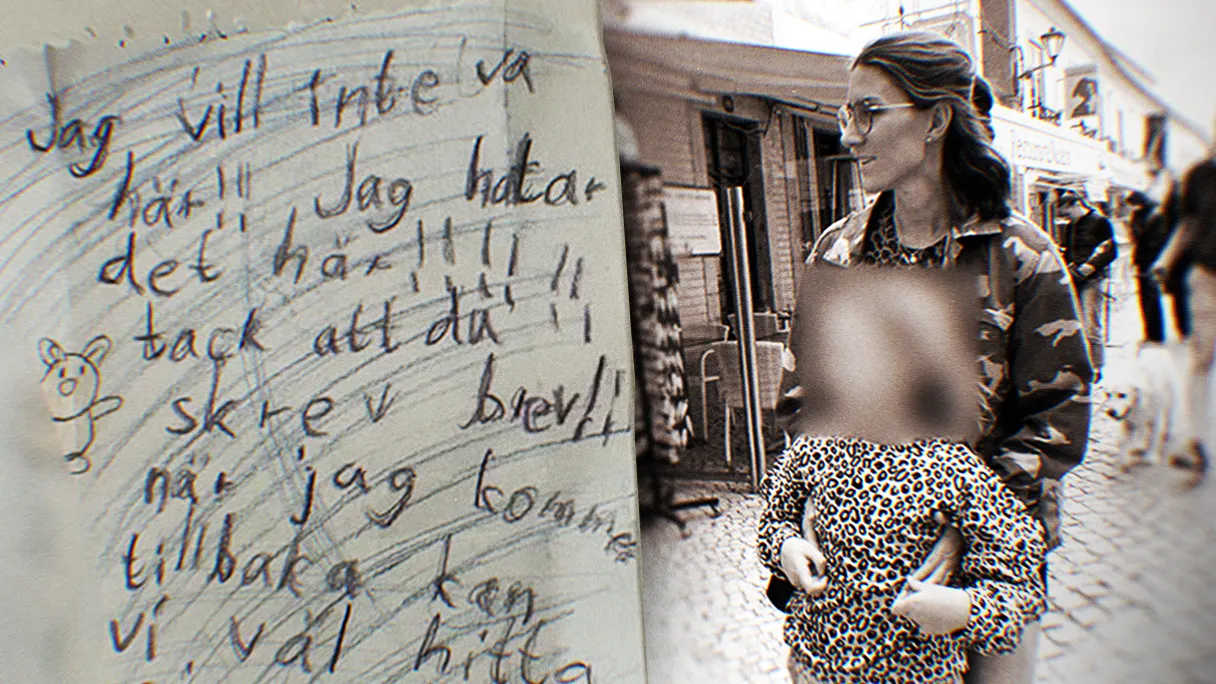 Jag vill inte va
här!! Jag hatar
det här!!!!!!
tack att du
skrev brev!!
när jag kommer
tillbaka kan
vi väl hitta
2